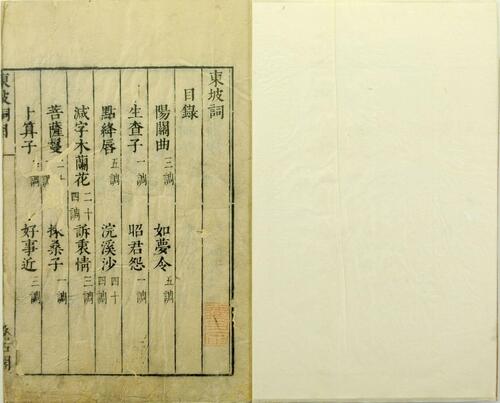 東坡詞
目錄
陽關曲 三調 如夢令 五調
生查子 一調 昭君怨 一調
點絳唇 五調 浣溪沙 四十四調
減字木蘭花 二十四調 訴衷情 三調
菩薩蠻 采桑子 一調
卜算子 二調 好事近 三調
東坡詞目